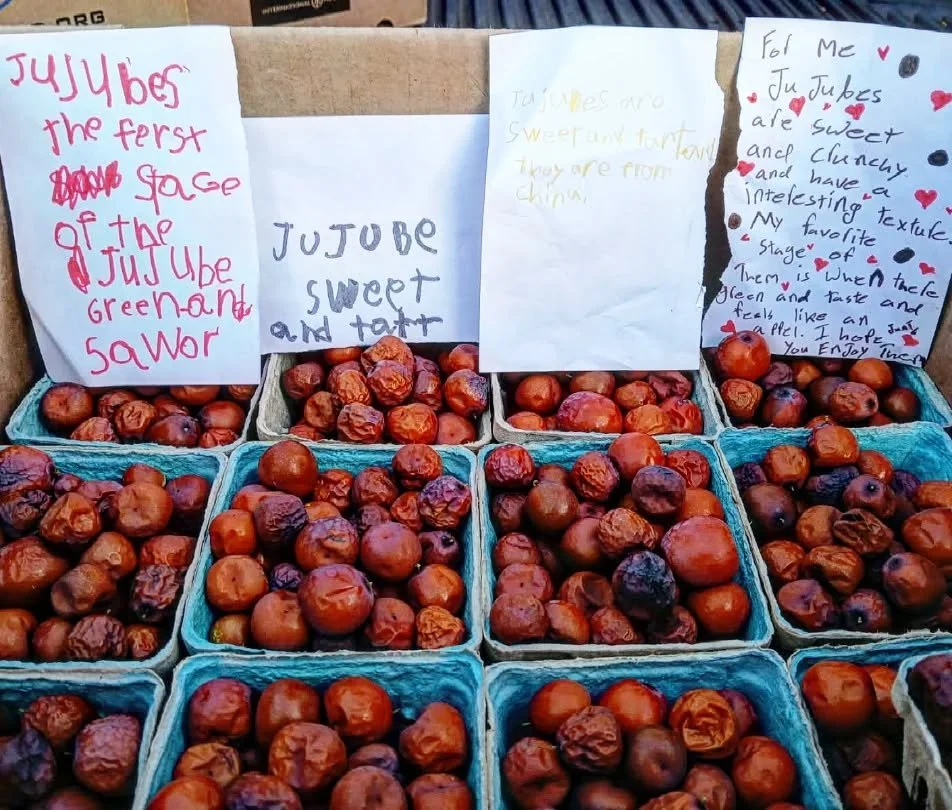 ORG
JUJUbes
the ferst
stage
of the
JUJUbe
Green and
sawor
JUJUBE
sweet
and tart
Jujubes are
sweet and tart and
they are from
China.
For Me
JuJubes
are sweet
and crunchy
and have a
interesting texture
My favorite
stage of
Them is when there
green and taste and
feels like an
appel. I hope
You Enjoy Them